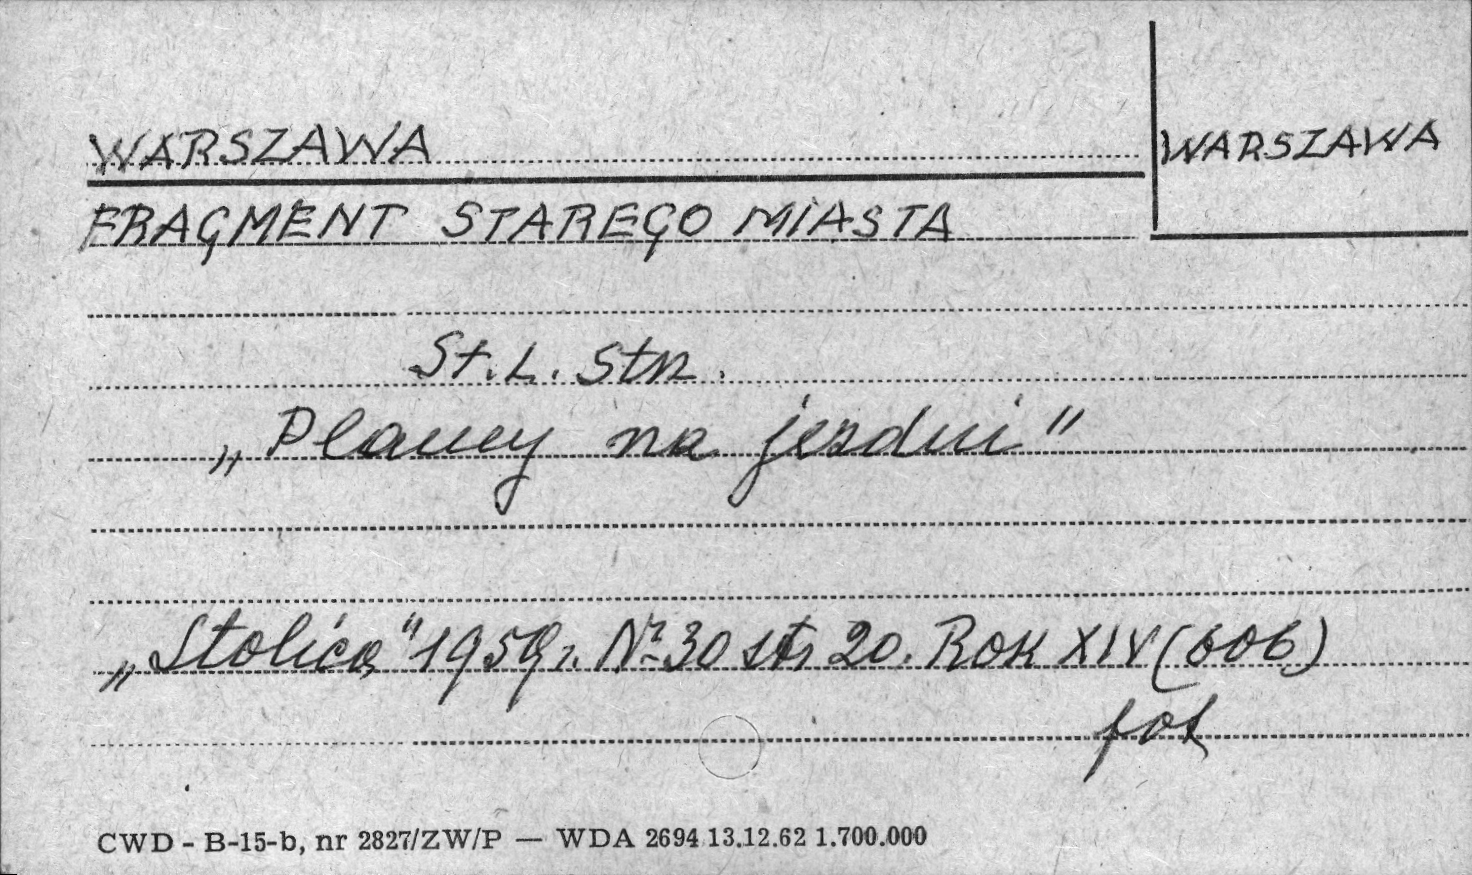 WARSZAWA
WARSZAWA
FRAGMENT STAREGO MIASTA
St. L. Str.
„Plamy na jezdni"
„Stolica" 1959 r. Nr 30 str 20. Rok XIV (606)
fot
CWD - B-15-b, nr 2827/ZW/P — WDA 2694 13.12.62 1.700.000